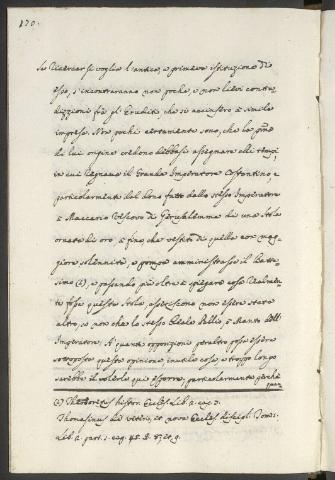 170.
Se ricercar si voglia l'antica, e primeva istituzione di
esso, s'incontraranno non poche, e non lievi contra
dizzioni frà gl'Eruditi che si accinsero à simile
impresa. Non pochi certamente sono, che la prima
di lui origine credono debbasi assegnare alli tempi,
in cui regnava il Grande Imperatore Costantino, e
particolarmente dal dono fatto dallo stesso Imperatore
à Maccario Vescovo di Gerusalemme di una Stola
ornata di oro, à fine che vestito di quella con mag-
giore solennità, e pompa amministrasse il Batte-
simo (a), e passando più oltre à spiegare cosa
fosse questa Stola, asseriscono non essere stata
altro, se non che lo stesso Pallio, ò Manto dell'
Imperatore. A quante opposizioni peraltro possa essere
sottoposta questa opinione inutile cosa, e troppo longa
sarebbe il volerla qui esporre, particolarmente perchè
(a) Theodoretus histor. Eccles. Lib. 2. cap.
Thomasinus de veteri, et nova Eccles. discipl. Tom. 1.
Lib. 2. part. 1. cap. 45.